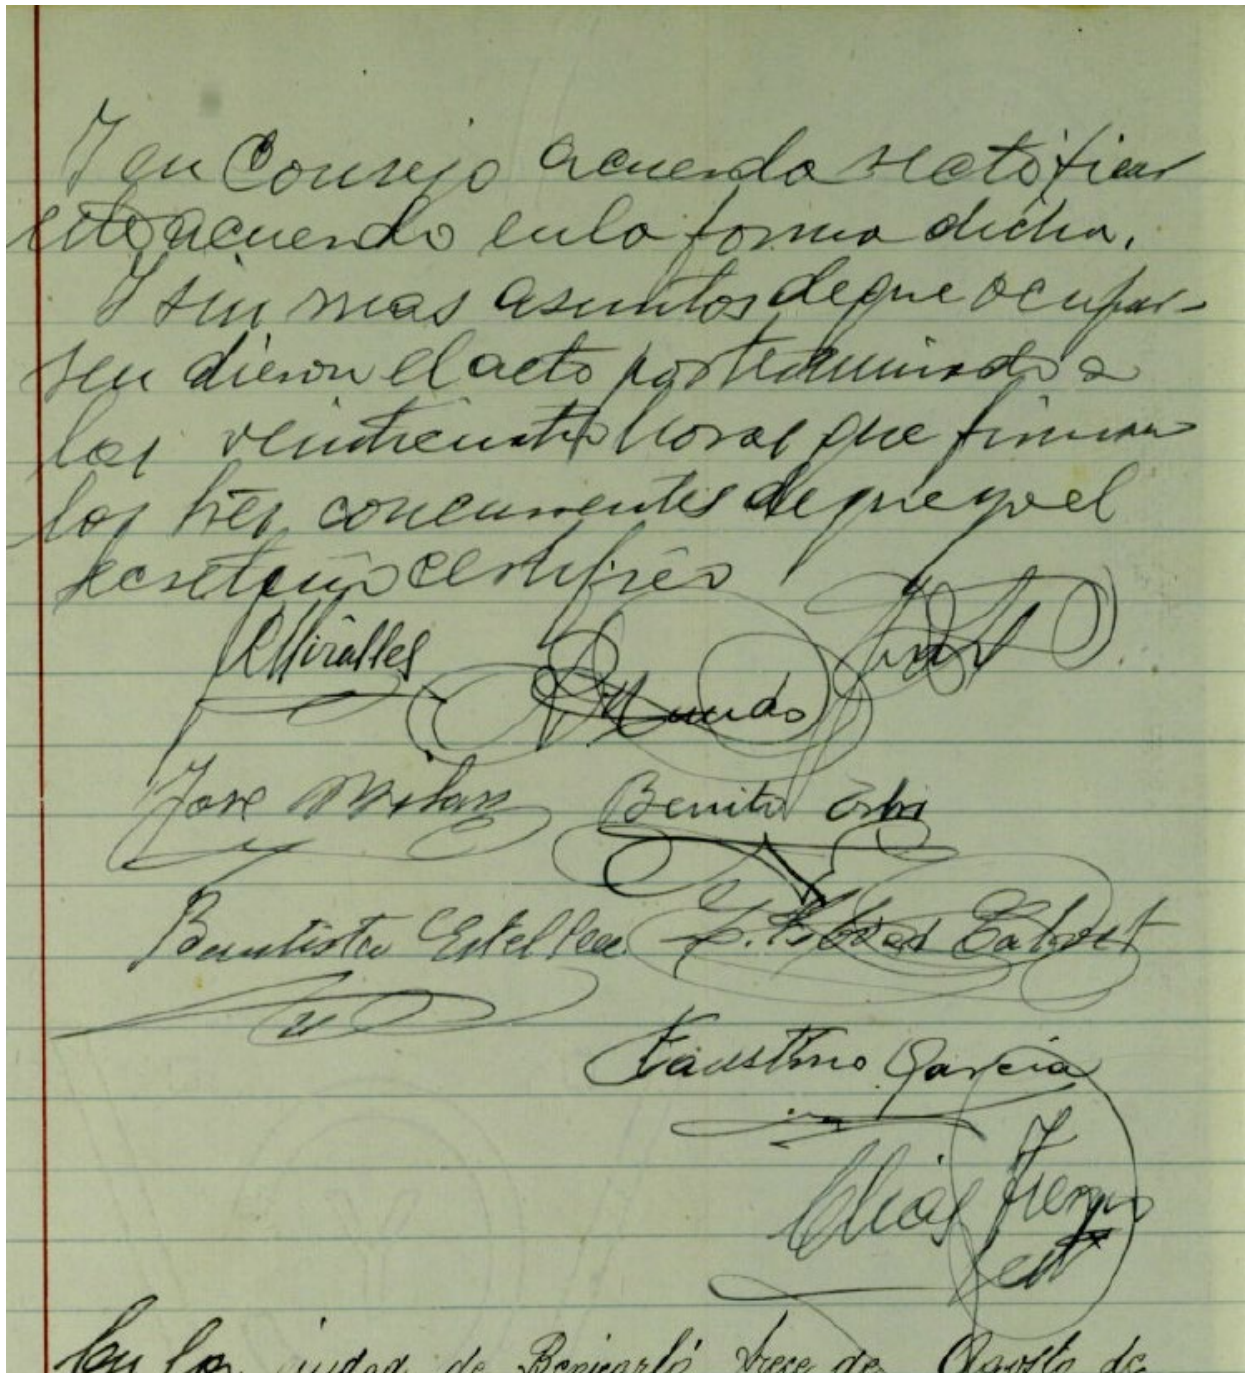 Y en Consejo acuerda rectificar
este acuerdo en la forma dicha.
Y sin mas asuntos de que ocupar-
sen dieron el acto por terminado a
las veinticuatro horas que firman
los tres concurrentes de que yo el
secretario certifico
RMiralles
Mundo
Jose Milan
Benito
Bautista Esteller
Calvet
Faustino Garcia
Elias
En la ciudad de Benicarló trece de Agosto de